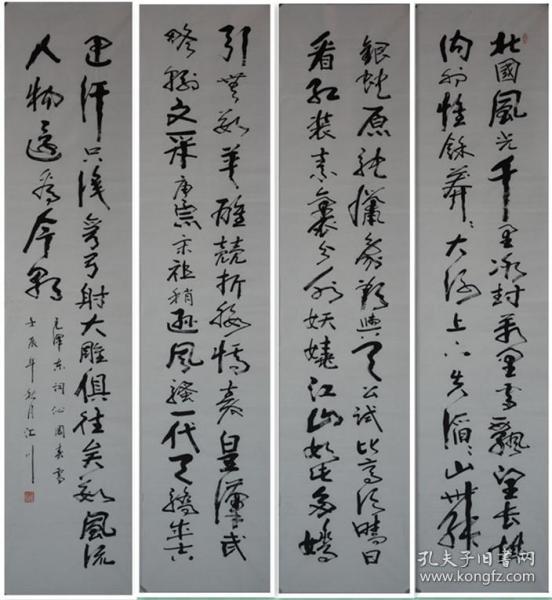 北國風光千里冰封萬里雪飄望長城
內外惟餘莽〻大河上下失滔〻山舞
銀蛇原馳蠟象欲與天公試比高須晴日
看紅裝素裹分外妖嬈江山如此多嬌
引無數英雄競折腰惜秦皇漢武
略輸文采唐宗宋祖稍遜風騷一代天驕成吉
思汗只識彎弓射大雕俱往矣數風流
人物還看今朝
毛澤东詞沁園春雪
壬辰年秋月江川
孔夫子旧书网